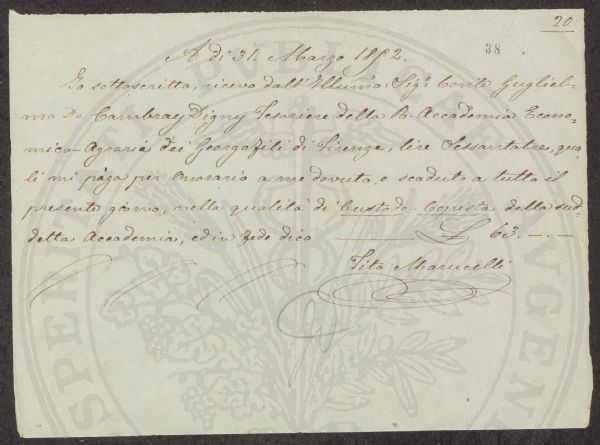 20
38
A dì 31. Marzo 1852.
Io sottoscritto, ricevo dall'Illumo: Sigr. Conte Gugliel-
mo De Cambray Digny Tesoriere della R. Accademia Econo-
mico-Agraria dei Georgofili di Firenze, lire Sessantatre, qua
li mi paga per Onorario a me dovuto, e scaduto a tutto il
presente giorno, nella qualità di Custode Copista della sud-
detta Accademia, ed in fede dico £ 63.-.-
Tito Marucelli